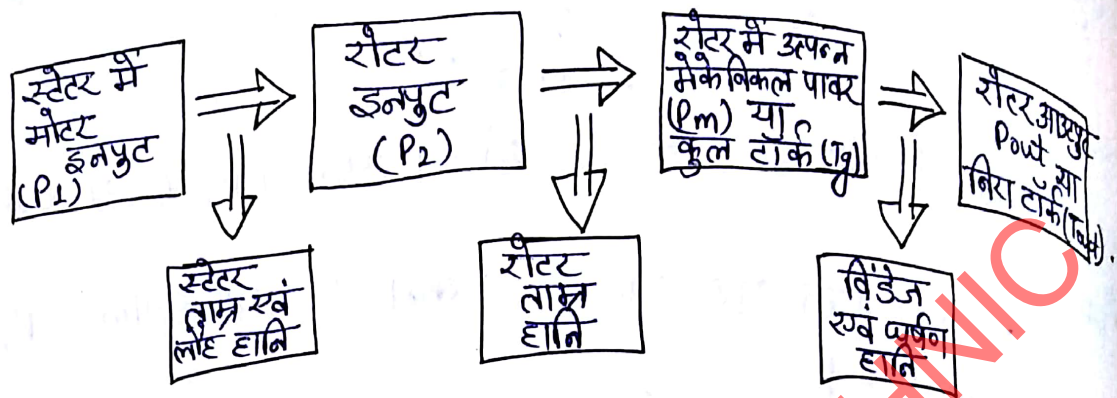 स्टेटर में
मोटर
इनपुट
(P1)
रोटर
इनपुट
(P2)
रोटर में उत्पन्न
मेकेनिकल पावर
(Pm) या
कुल टॉर्क (Tg)
रोटर आउटपुट
Pout या
निरा टॉर्क (Tout).
स्टेटर
ताम्र एवं
लौह हानि
रोटर
ताम्र
हानि
विंडेज
एवं घर्षण
हानि